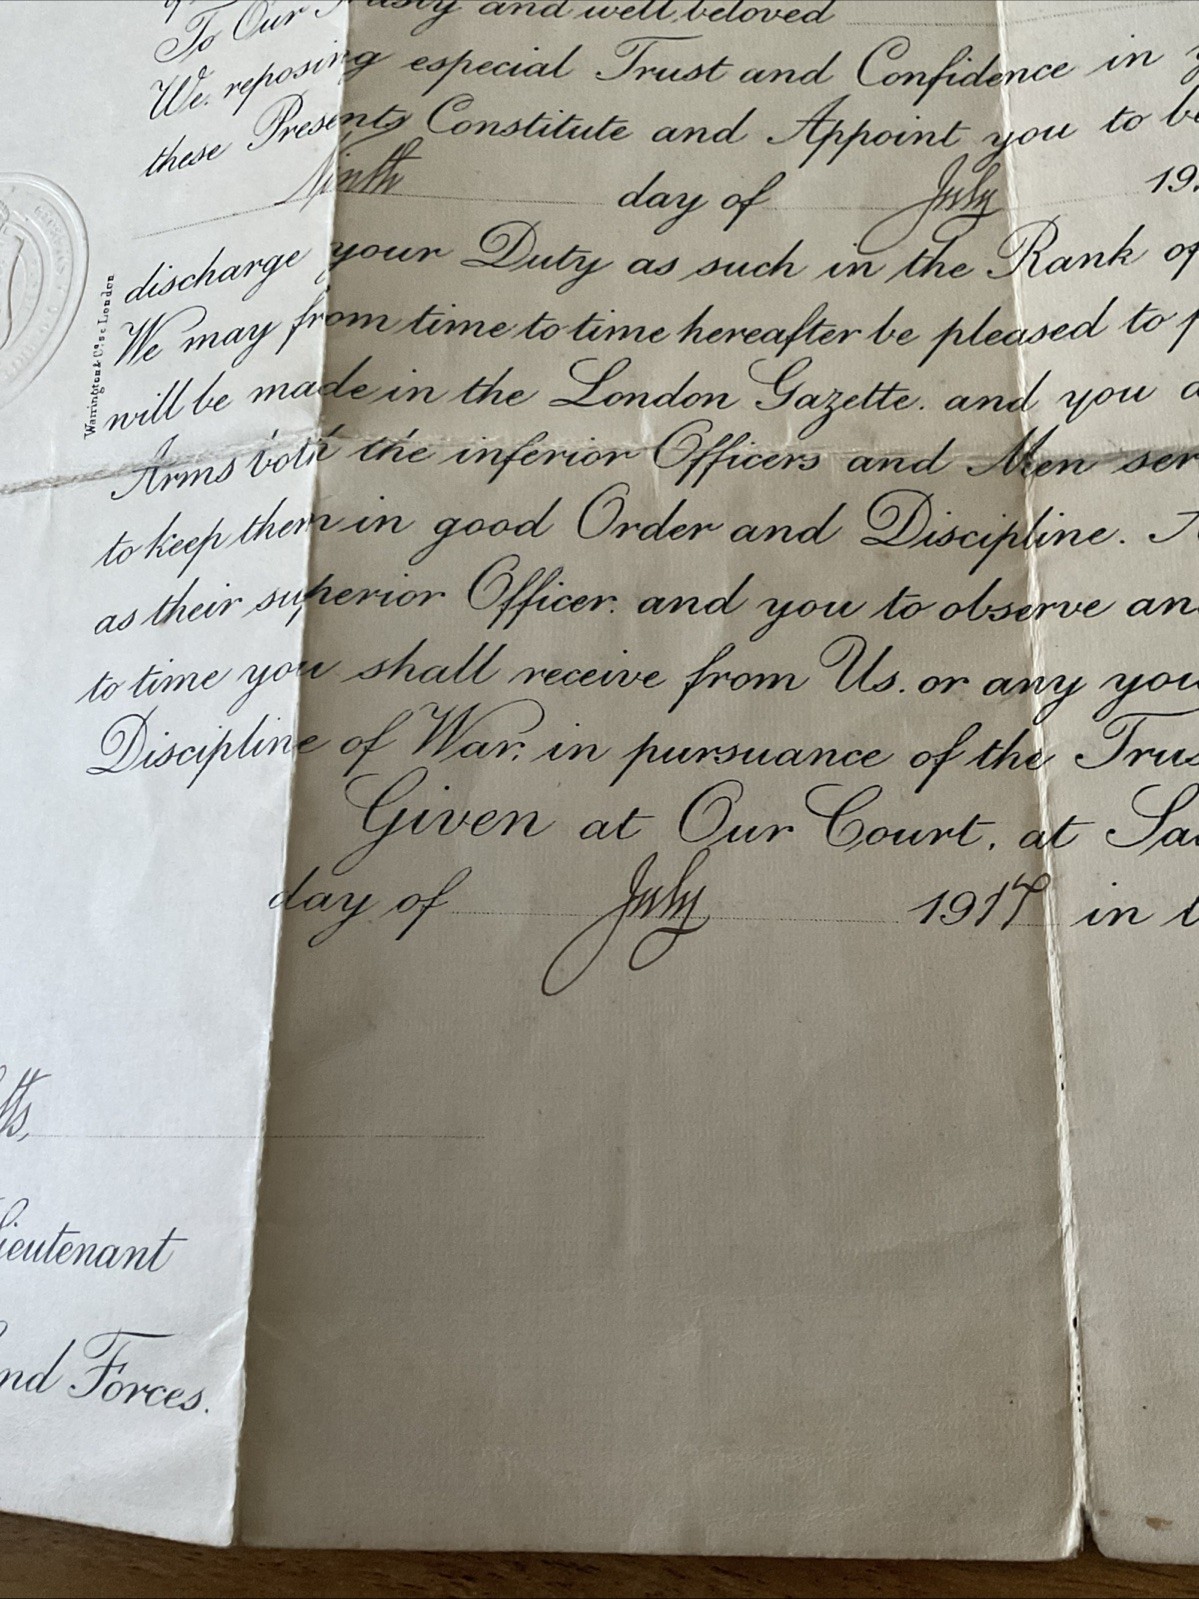 To Our Trusty and well beloved
We. reposing especial Trust and Confidence in
these Presents Constitute and Appoint you to be
Ninth day of July 19
discharge your Duty as such in the Rank of
We may from time to time hereafter be pleased to
will be made in the London Gazette. and you
Arms both the inferior Officers and Men ser
to keep them in good Order and Discipline.
as their superior Officer. and you to observe an
to time you shall receive from Us. or any you
Discipline of War, in pursuance of the Trus
Given at Our Court, at Sa
day of July 1917 in t
Warrington & Co. sc London
ieutenant
nd Forces.